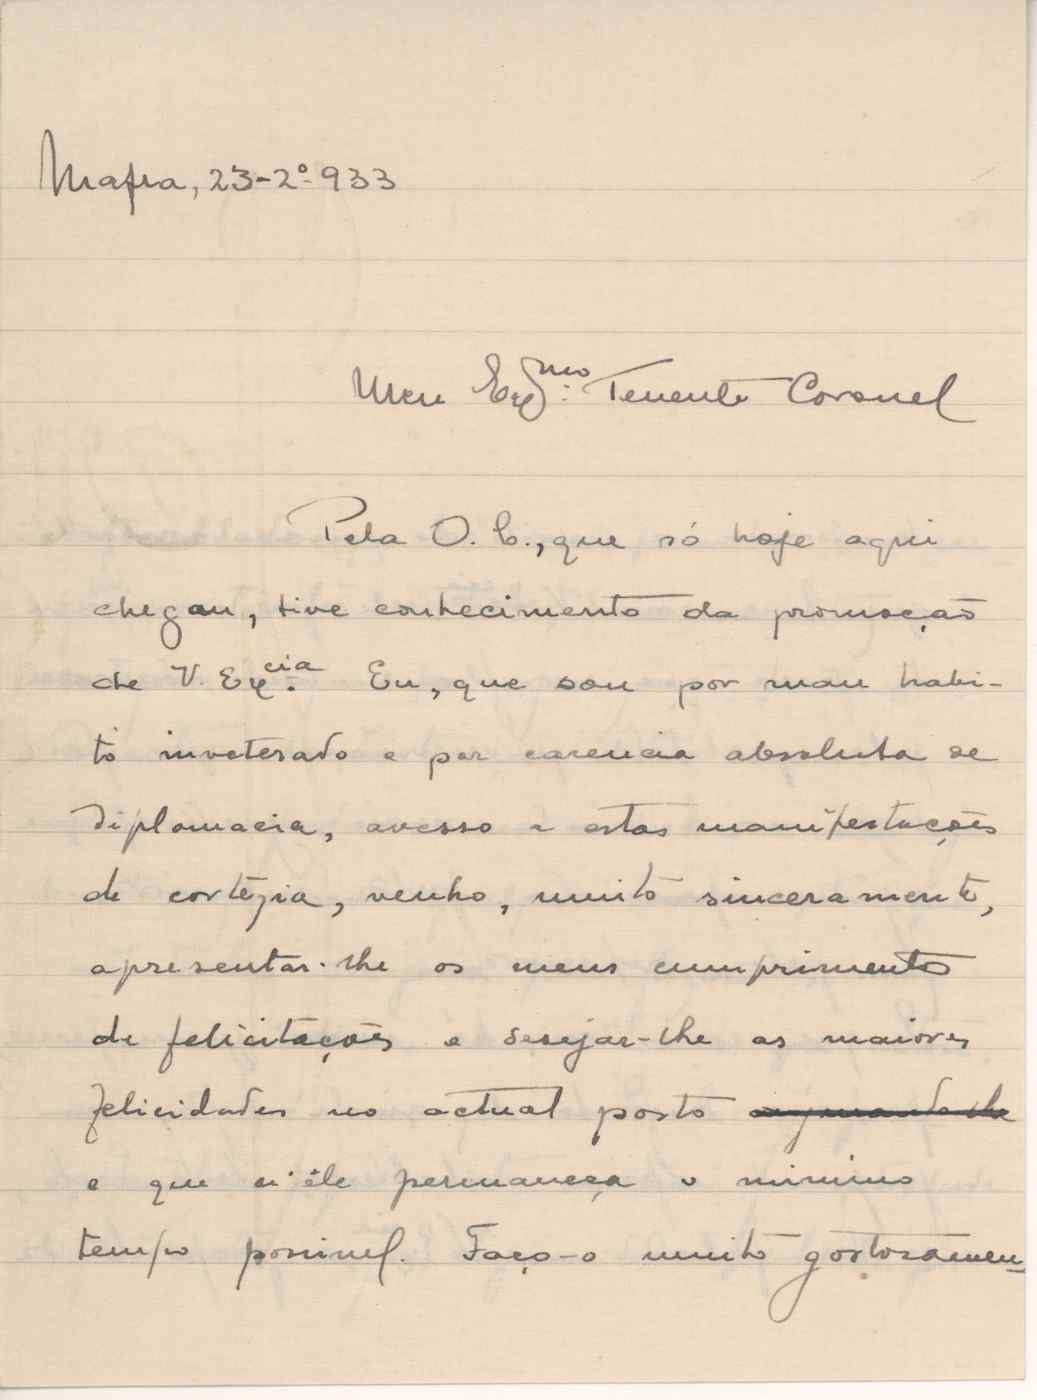 Mafra, 23-2º-933
Meu Exmo: Tenente Coronel
Pela O. E., que só hoje aqui
chegou, tive conhecimento da promoção
de V. Excia. Eu, que sou por mau habi-
to inveterado e por carencia absoluta de
diplomacia, avesso a estas manifestações
de cortezia, venho, muito sinceramente,
apresentar-lhe os meus cumprimentos
de felicitações e desejar-lhe as maiores
felicidades no actual posto
e que n'êle permaneça o minimo
tempo possivel. Faço-o muito gostosamen-